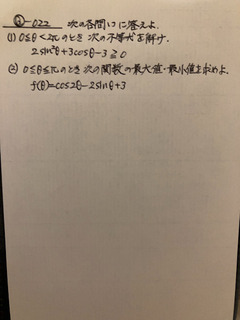 ②-022 次の各問いに答えよ.
(1) 0≦θ<2πのとき 次の不等式を解け.
2sin²θ+3cosθ-3≧0
(2) 0≦θ≦πのとき 次の関数の最大値・最小値を求めよ.
f(θ)=cos2θ-2sinθ+3